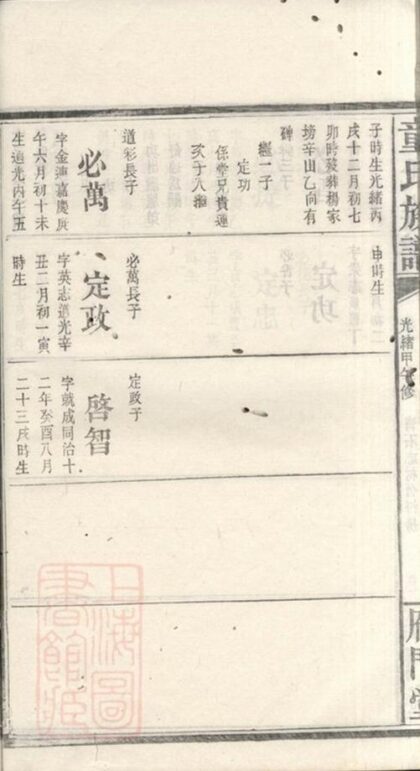 童氏族譜
光緒甲午修
子時生光緒丙
戌十二月初七
卯時歿葬楊家
塝辛山乙向有
碑
繼一子
定功
係堂兄貴連
次子入繼
道彩長子
必萬
字金迪嘉慶庚
午六月初十未
生道光丙午五
申時生
必萬長子
定政
字英志道光辛
丑二月初一寅
時生
定政子
啓智
字就成同治十
二年癸酉八月
二十三戌時生
上海圖
書館藏